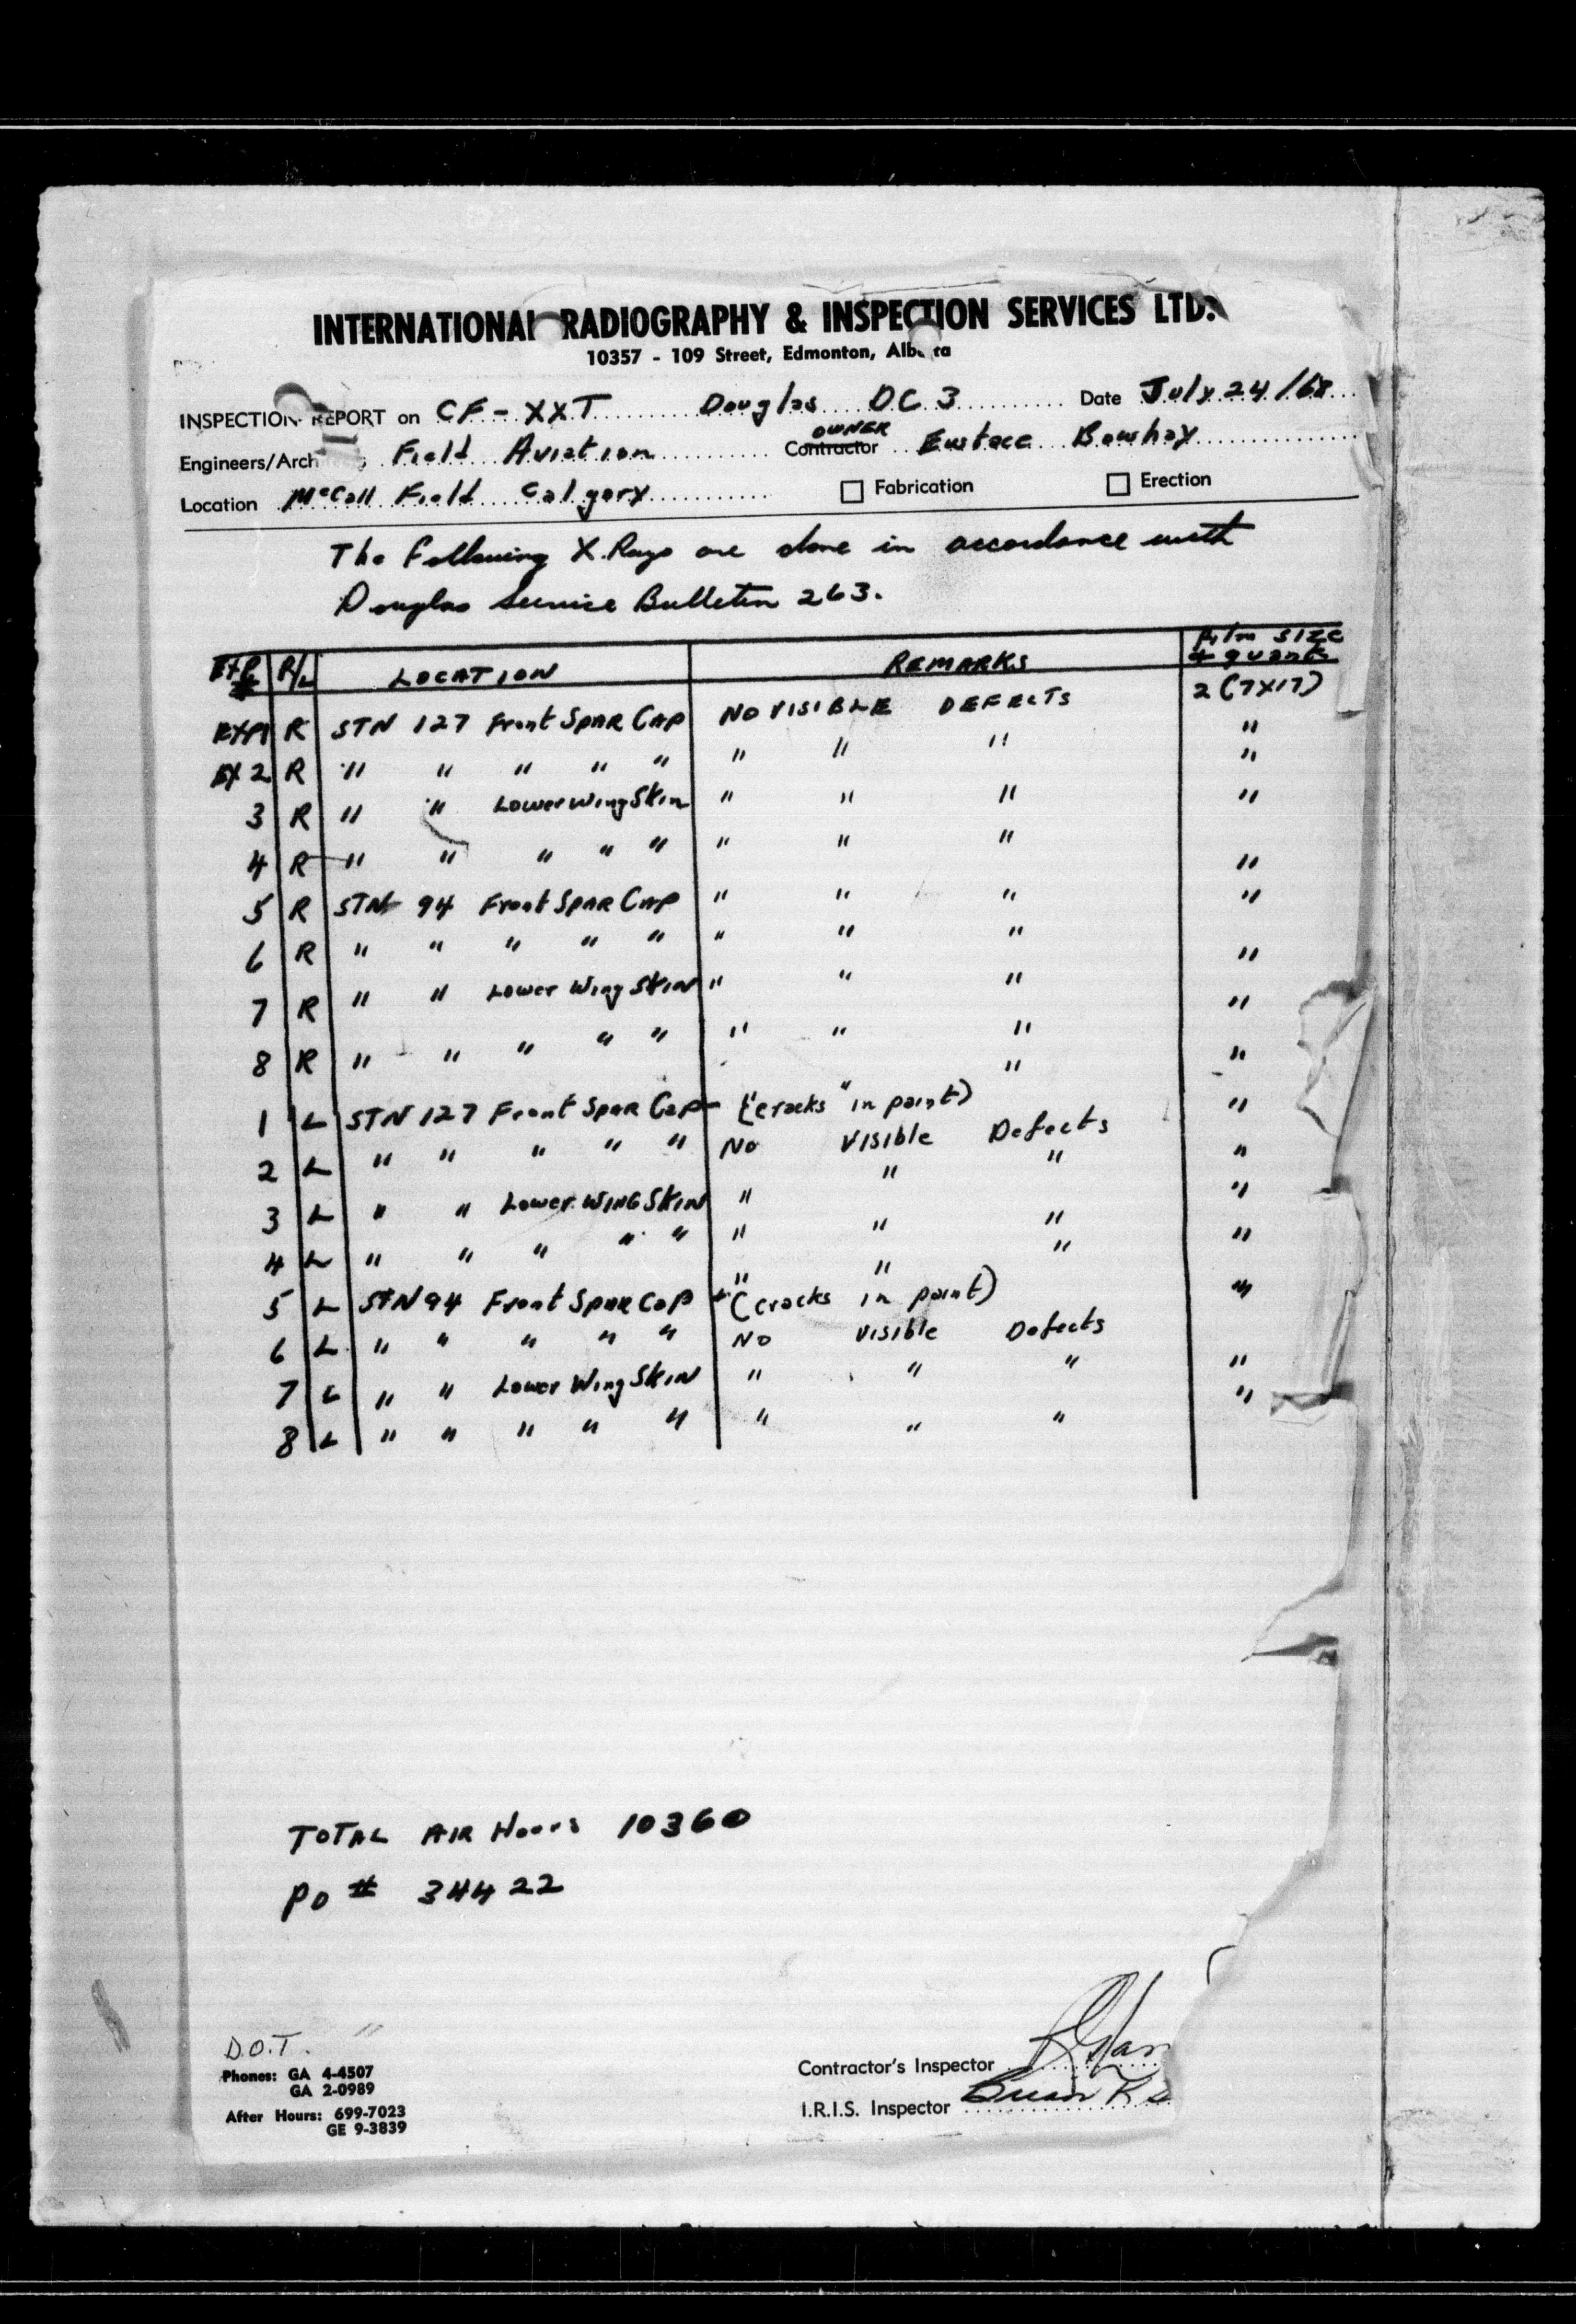 INTERNATIONAL RADIOGRAPHY & INSPECTION SERVICES LTD.
10357 - 109 Street, Edmonton, Alberta
INSPECTION REPORT on CF-XXT Douglas DC3 Date July 24/68
OWNER
Engineers/Arch Field Aviation Contractor Eustace Bowhay
Location McCall Field Calgary Fabrication Erection
The following X.Rays are done in accordance with
Douglas Service Bulletin 263.
EXP # R/L LOCATION REMARKS Film size + quant
EXP1 R STN 127 Front SPAR CAP NO VISIBLE DEFECTS 2 (7X17)
EX 2 R " " " " " " " " "
3 R " " Lower Wing Skin " " " "
4 R " " " " " " " " "
5 R STN 94 Front SPAR CAP " " " "
6 R " " " " " " " " "
7 R " " Lower Wing SKIN " " " "
8 R " " " " " " " " "
1 L STN 127 Front Spar Cap - " (cracks in paint) " "
2 L " " " " " No Visible Defects "
3 L " " Lower WING SKIN " " " "
4 L " " " " " " " " "
5 L STN 94 Front SPAR CAP + " (cracks in paint) " " "
6 L " " " " " No Visible Defects "
7 L " " Lower Wing SKIN " " " "
8 L " " " " " " " " "
TOTAL AIR Hours 10360
PO # 34422
D.O.T.
Phones: GA 4-4507
GA 2-0989
After Hours: 699-7023
GE 9-3839
Contractor's Inspector
I.R.I.S. Inspector Brian R